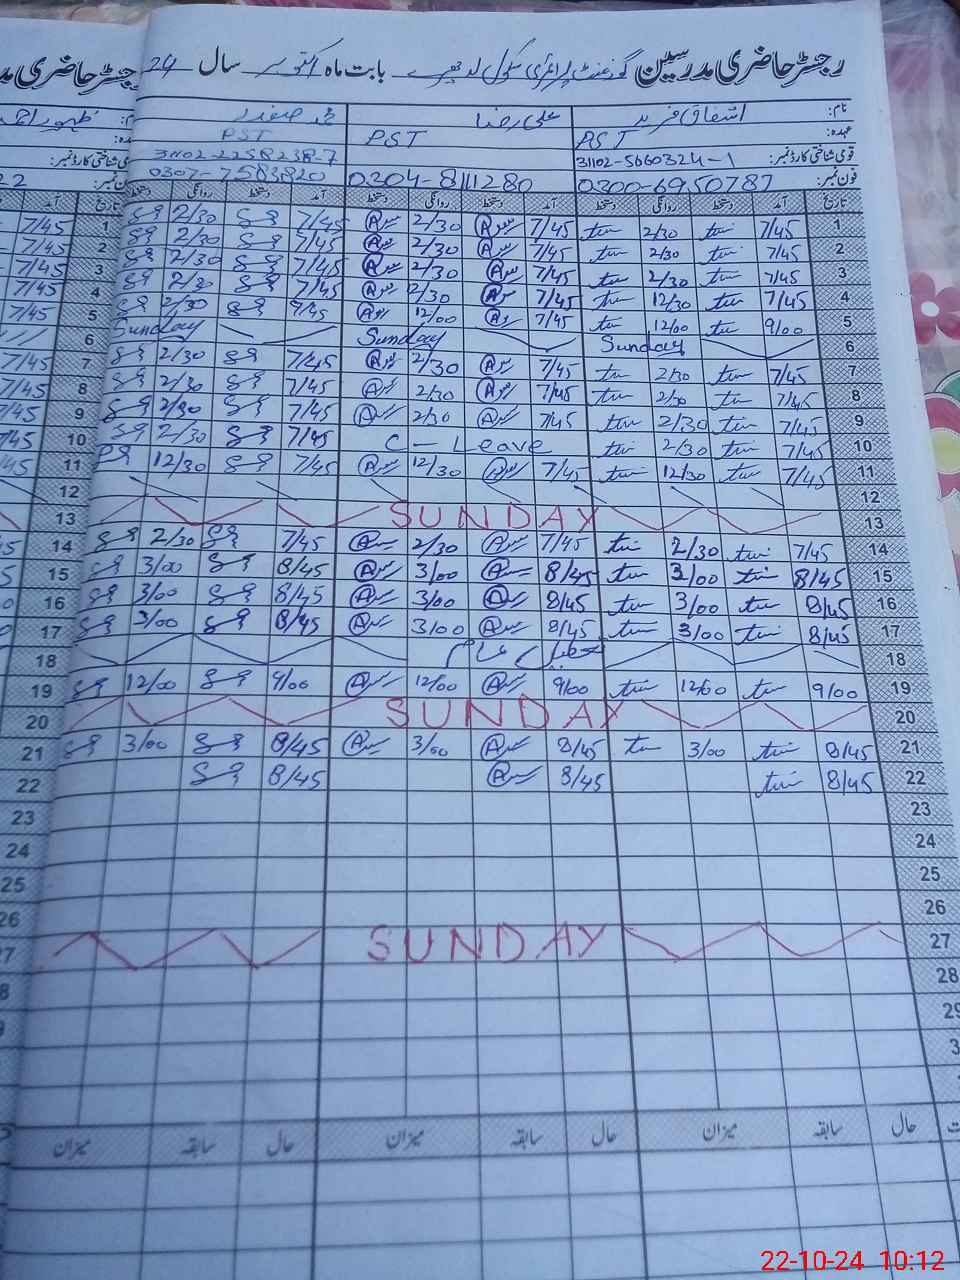 رجسٹر حاضری مدرسین گورنمنٹ پرائمری سکول بابت ماہ اکتوبر سال 24
نام: اشفاق فرید علی رضا محمد صفدر
عہدہ: PST PST PST
قومی شناختی کارڈ نمبر: 31102-5660324-1 31102-2258238-7
فون نمبر: 0300-6950787 0204-8111280 0307-7583820
تاریخ آمد دستخط روانگی دستخط آمد دستخط روانگی دستخط آمد دستخط روانگی دستخط تاریخ
1 7/45 2/30 7/45 2/30 7/45 2/30 1
2 7/45 2/30 7/45 2/30 7/45 2/30 2
3 7/45 2/30 7/45 2/30 7/45 2/30 3
4 7/45 12/30 7/45 2/30 7/45 2/30 4
5 9/00 12/00 7/45 12/00 9/45 2/30 5
6 Sunday Sunday Sunday 6
7 7/45 2/30 7/45 2/30 7/45 2/30 7
8 7/45 2/30 7/45 2/30 7/45 2/30 8
9 7/45 2/30 7/45 2/30 7/45 2/30 9
10 7/45 2/30 C - Leave 7/45 2/30 10
11 7/45 12/30 7/45 12/30 7/45 12/30 11
12 12
13 SUNDAY 13
14 7/45 2/30 7/45 2/30 7/45 2/30 14
15 8/45 3/00 8/45 3/00 8/45 3/00 15
16 8/45 3/00 8/45 3/00 8/45 3/00 16
17 8/45 3/00 8/45 3/00 8/45 3/00 17
18 تعطیل عام 18
19 9/00 12/00 9/00 12/00 9/00 12/00 19
20 SUNDAY 20
21 8/45 3/00 8/45 3/00 8/45 3/00 21
22 8/45 8/45 8/45 22
23 23
24 24
25 25
26 26
27 SUNDAY 27
28
29
حال سابقہ میزان حال سابقہ میزان حال سابقہ میزان
22-10-24 10:12